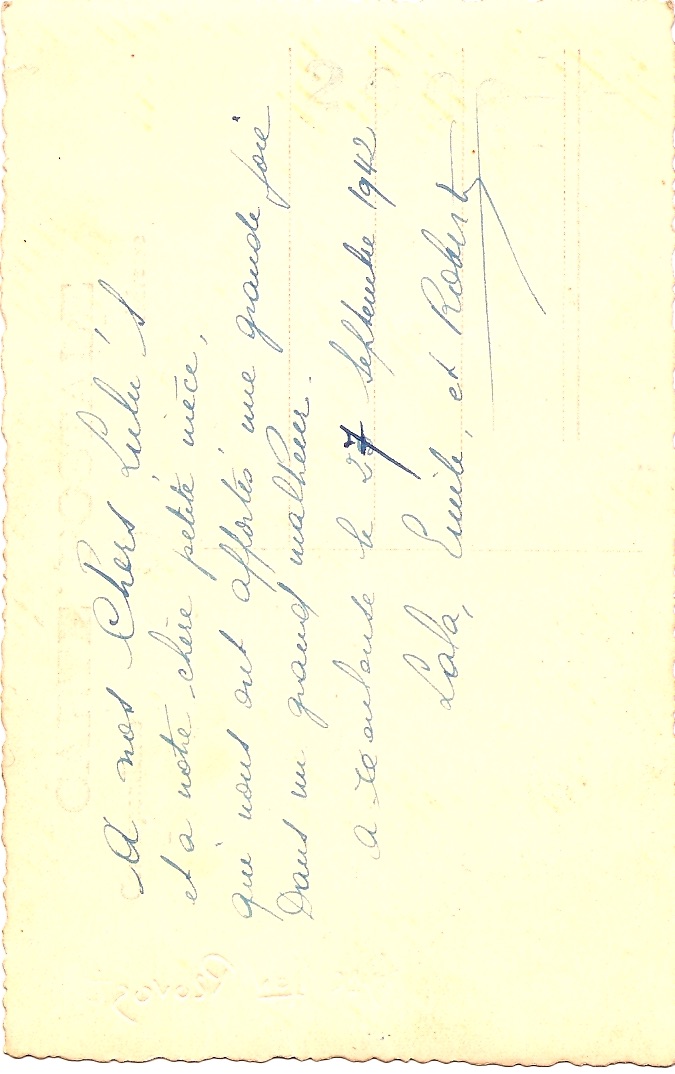 A nos Chers Lulu's
et a notre chère petite nièce,
qui nous ont apportés une grande joie
Dans un grand malheur.
a Toulouse le 27 Septembre 1942
Lola, Emile, et Robert